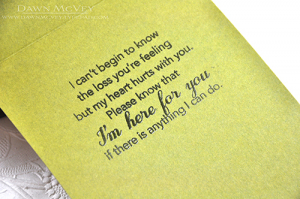 DAWN MCVEY
I can't begin to know
the loss you're feeling
but my heart hurts with you.
Please know that
I'm here for you
if there is anything I can do.